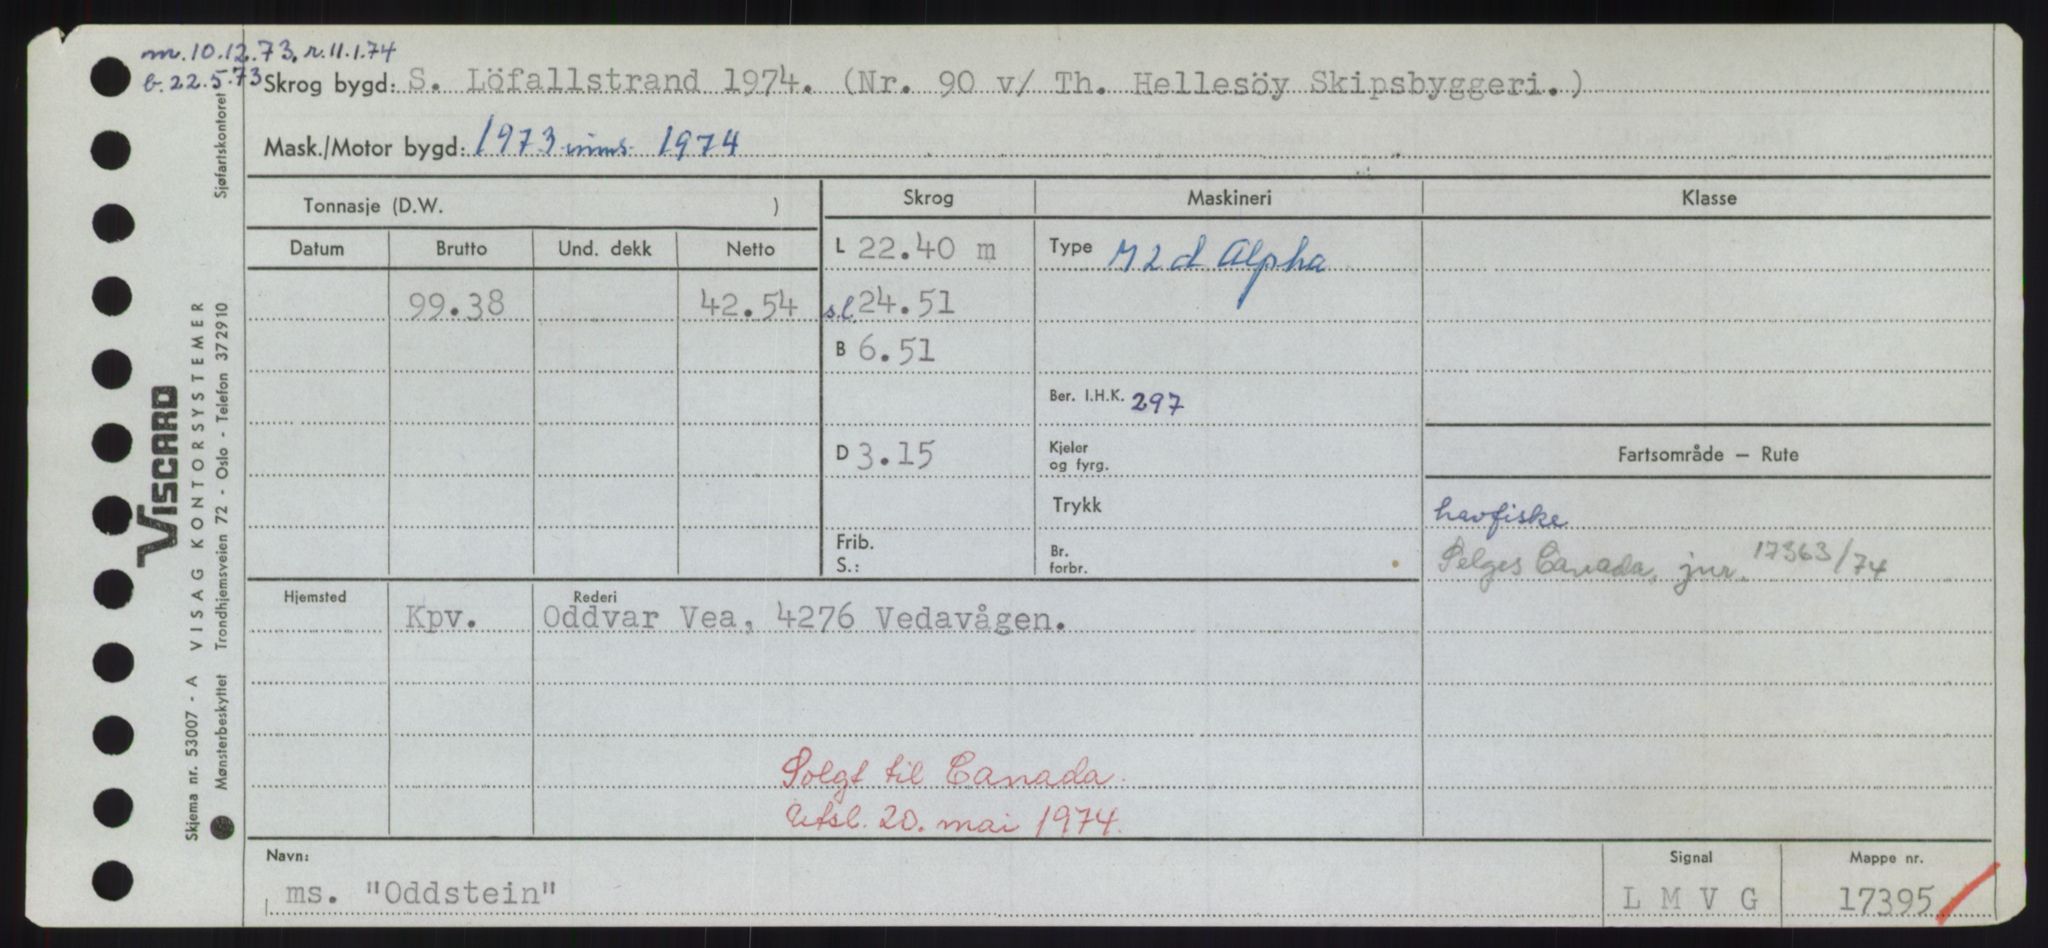 m. 10.12.73, r. 11.1.74
b. 22.5.73
Skrog bygd: S. Löfallstrand 1974. (Nr. 90 v/ Th. Hellesöy Skipsbyggeri.)
Mask./Motor bygd: 1973 inns. 1974
Tonnasje (D.W. )
Skrog
Maskineri
Klasse
Datum Brutto Und. dekk Netto
L 22.40 m
Type M 2 d Alpha
99.38 42.54
s.l. 24.51
B 6.51
Ber. I.H.K. 297
D 3.15
Kjeler
og fyrg.
Fartsområde — Rute
Trykk
havfiske
Frib.
S.:
Br.
forbr.
Selges Canada, jnr. 17363/74
Hjemsted Rederi
Kpv. Oddvar Vea, 4276 Vedavågen.
Solgt til Canada.
Utsl. 20. mai 1974.
Navn:
ms. "Oddstein"
Signal
L M V G
Mappe nr.
17395
Sjøfartskontoret
VISCARD
VISAG KONTORSYSTEMER
Trondhjemsveien 72 - Oslo - Telefon 372910
Skjema nr. 53007 - A
Mønsterbeskyttet